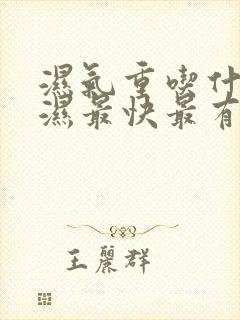 濕氣重喫什
濕最快最有
王麗群